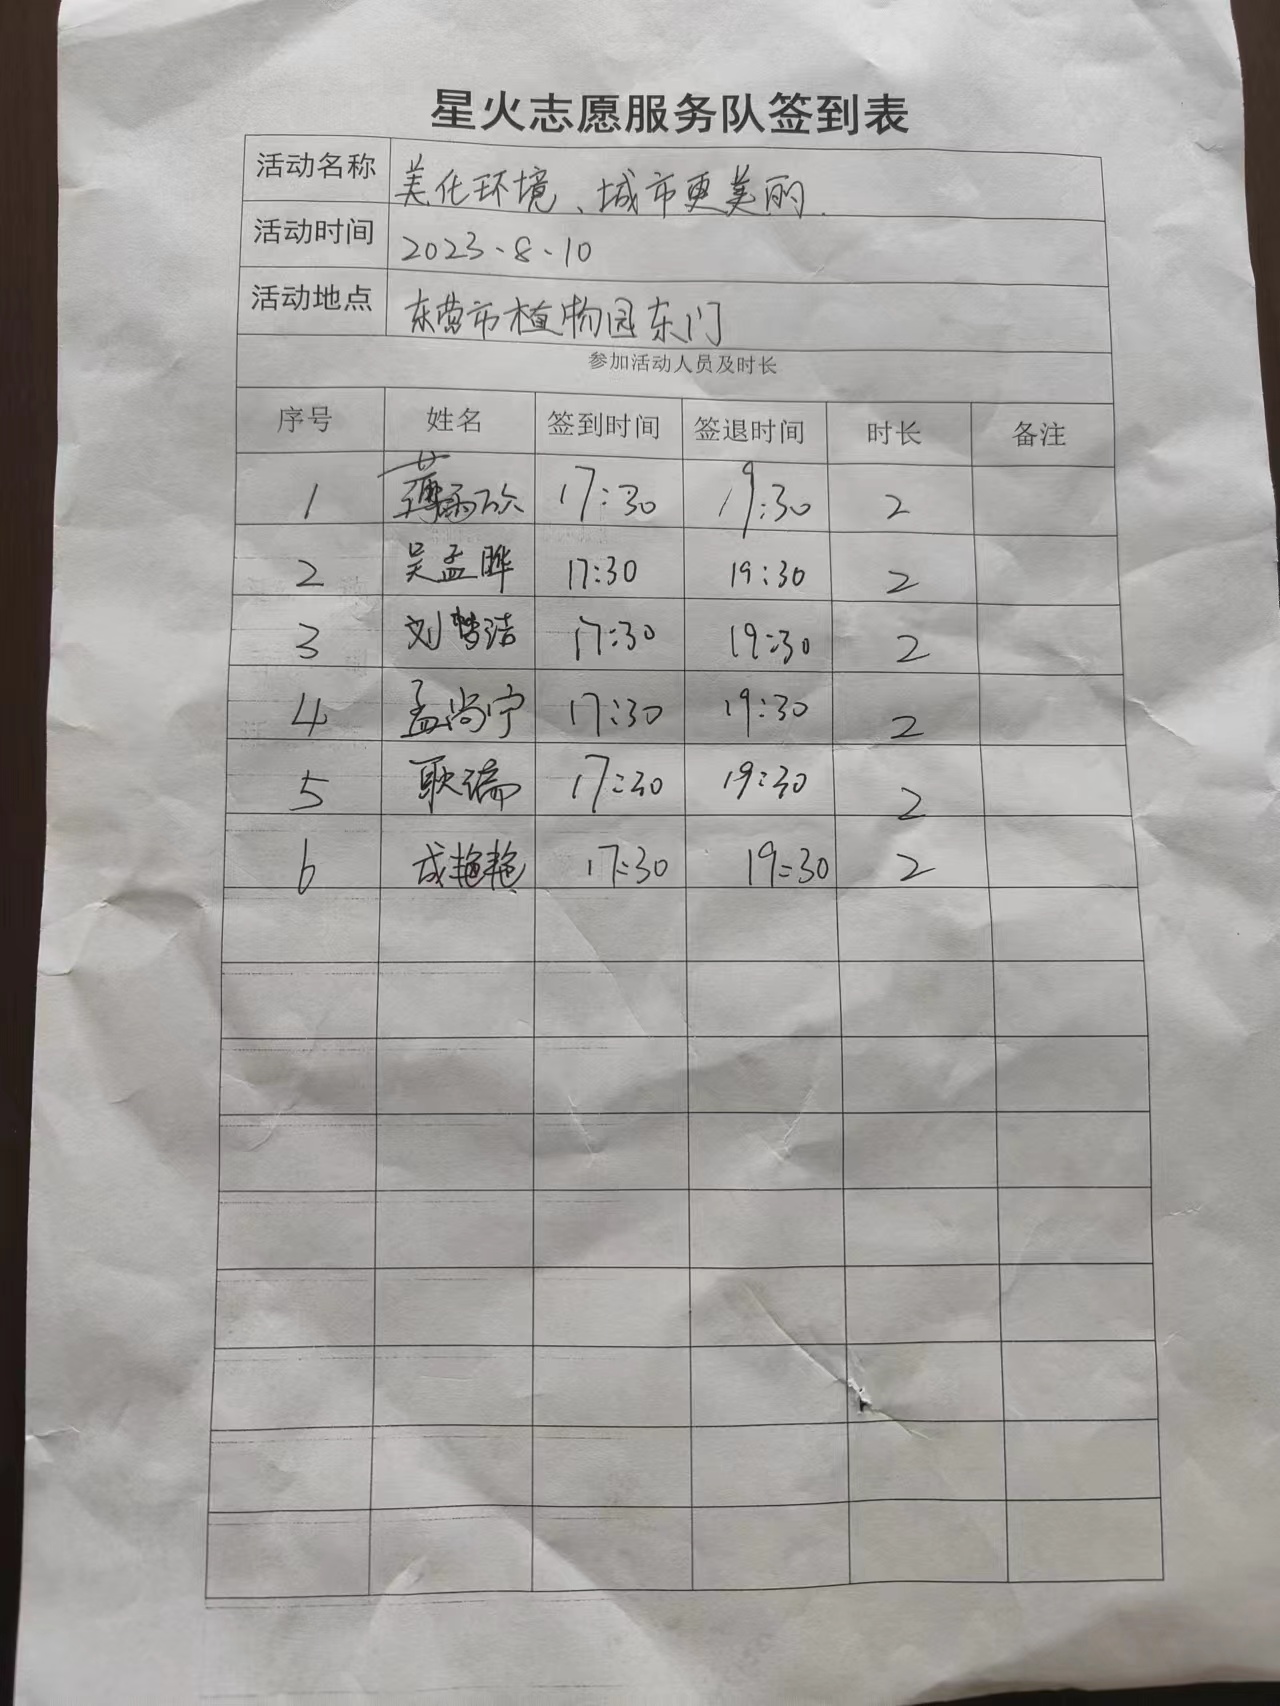 星火志愿服务队签到表
活动名称 美化环境、城市更美丽.
活动时间 2023.8.10
活动地点 东营市植物园东门
参加活动人员及时长
序号 姓名 签到时间 签退时间 时长 备注
1 薄 17:30 19:30 2
2 吴孟晔 17:30 19:30 2
3 刘梦洁 17:30 19:30 2
4 孟尚宁 17:30 19:30 2
5 耿瑞 17:30 19:30 2
6 成艳艳 17:30 19:30 2